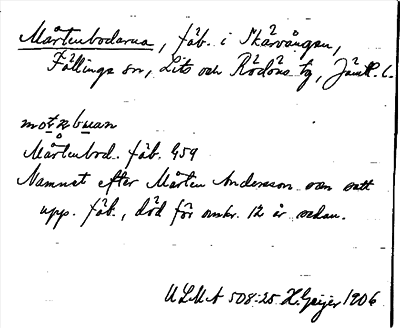 Mårtenbodarna, fäb. i Skärvången,
Föllinge sn, Lits och Rödöns tg, Jämtl. l.
Mårtenbod. fäb. 459
Namnet efter Mårten Andersson som satt
upp. fäb., död för omkr. 12 år sedan.
ULMA 508:25 H. Geijer 1906